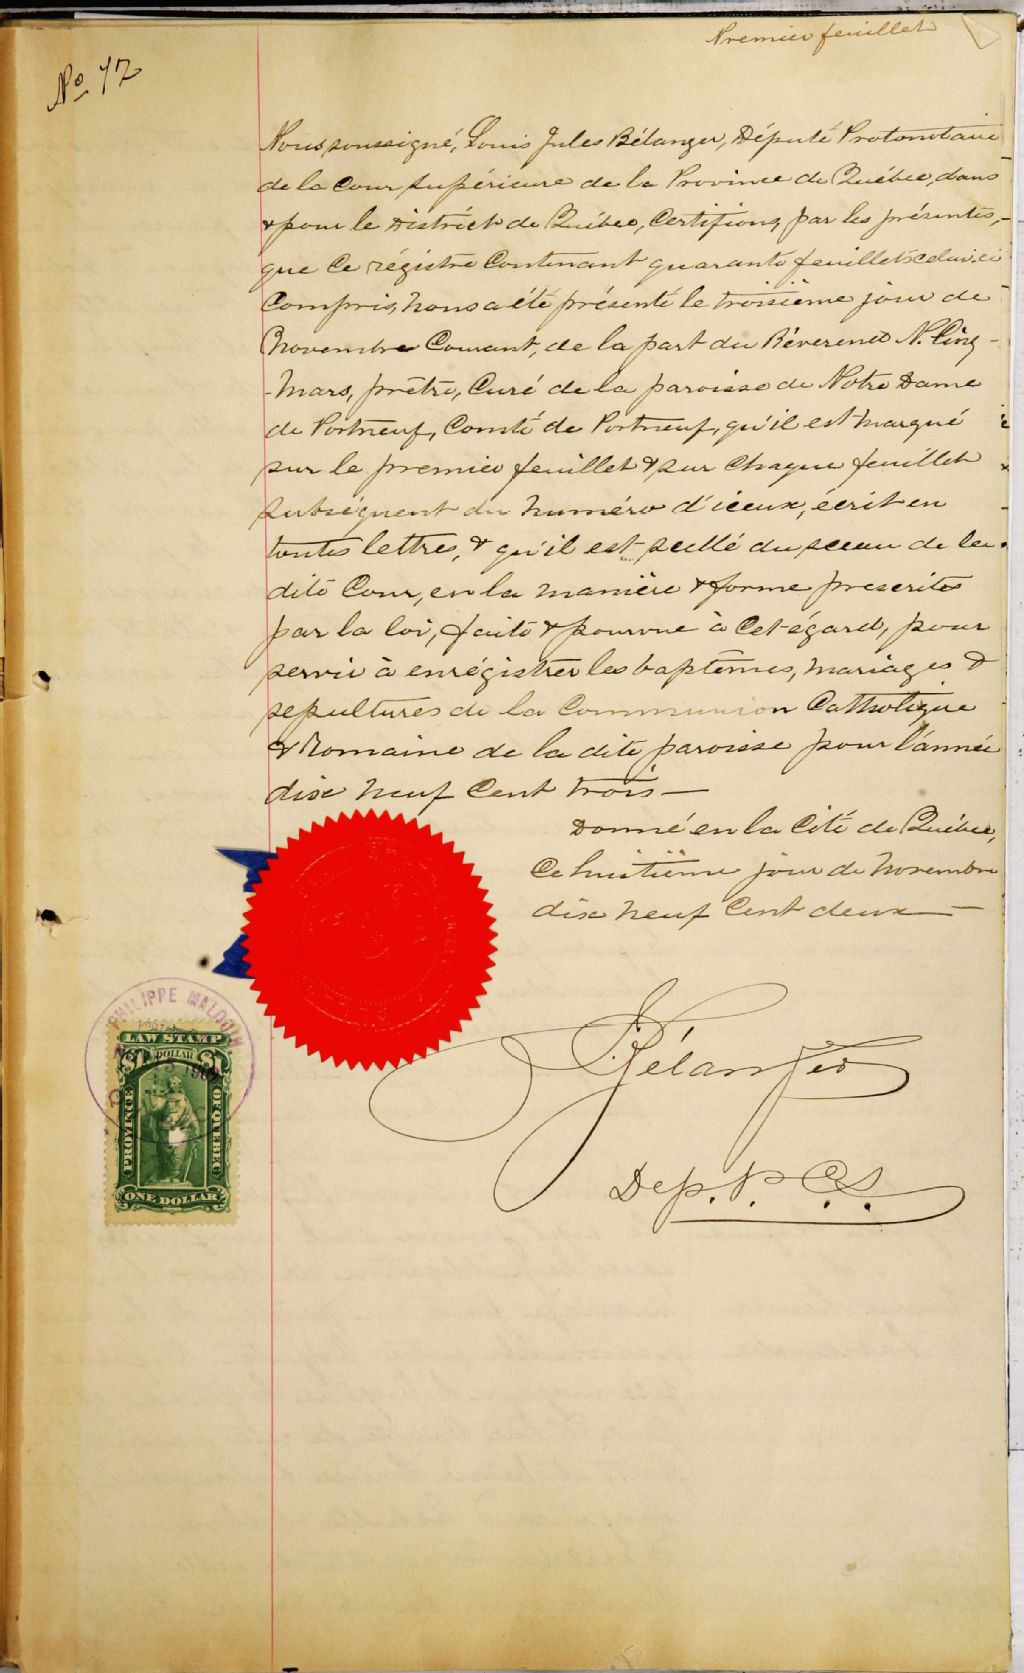 Premier feuillet
No 72
Nous, soussigné, Louis Jules Bélanger, Député Protonotaire
de la Cour Supérieure de la Province de Québec, dans
& pour le District de Québec, Certifions, par les présentes,
que ce régistre contenant quarante feuillets celui-ci
compris, nous a été présenté le troisième jour de
Novembre Courant, de la part du Révérend N. Cinq-
-Mars, prêtre, Curé de la paroisse de Notre Dame
de Portneuf, Comté de Portneuf, qu'il est marqué
sur le premier feuillet & sur chaque feuillet
subséquent du numéro d'iceux, écrit en
toutes lettres, & qu'il est scellé du sceau de la
dite Cour, en la manière & forme prescrites
par la loi, faite & pourvue à cet égard, pour
servir à enrégistrer les baptêmes, mariages &
sepultures de la Communion Catholique
& Romaine de la dite paroisse pour l'année
dix neuf cent trois —
Donné en la Cité de Québec,
ce huitième jour de Novembre
dix neuf cent deux —
PHILIPPE MALOUIN
LAW STAMP
$1 DOLLAR $1
PROVINCE OF QUEBEC
ONE DOLLAR
Bélanger
Dep. P. C. S.